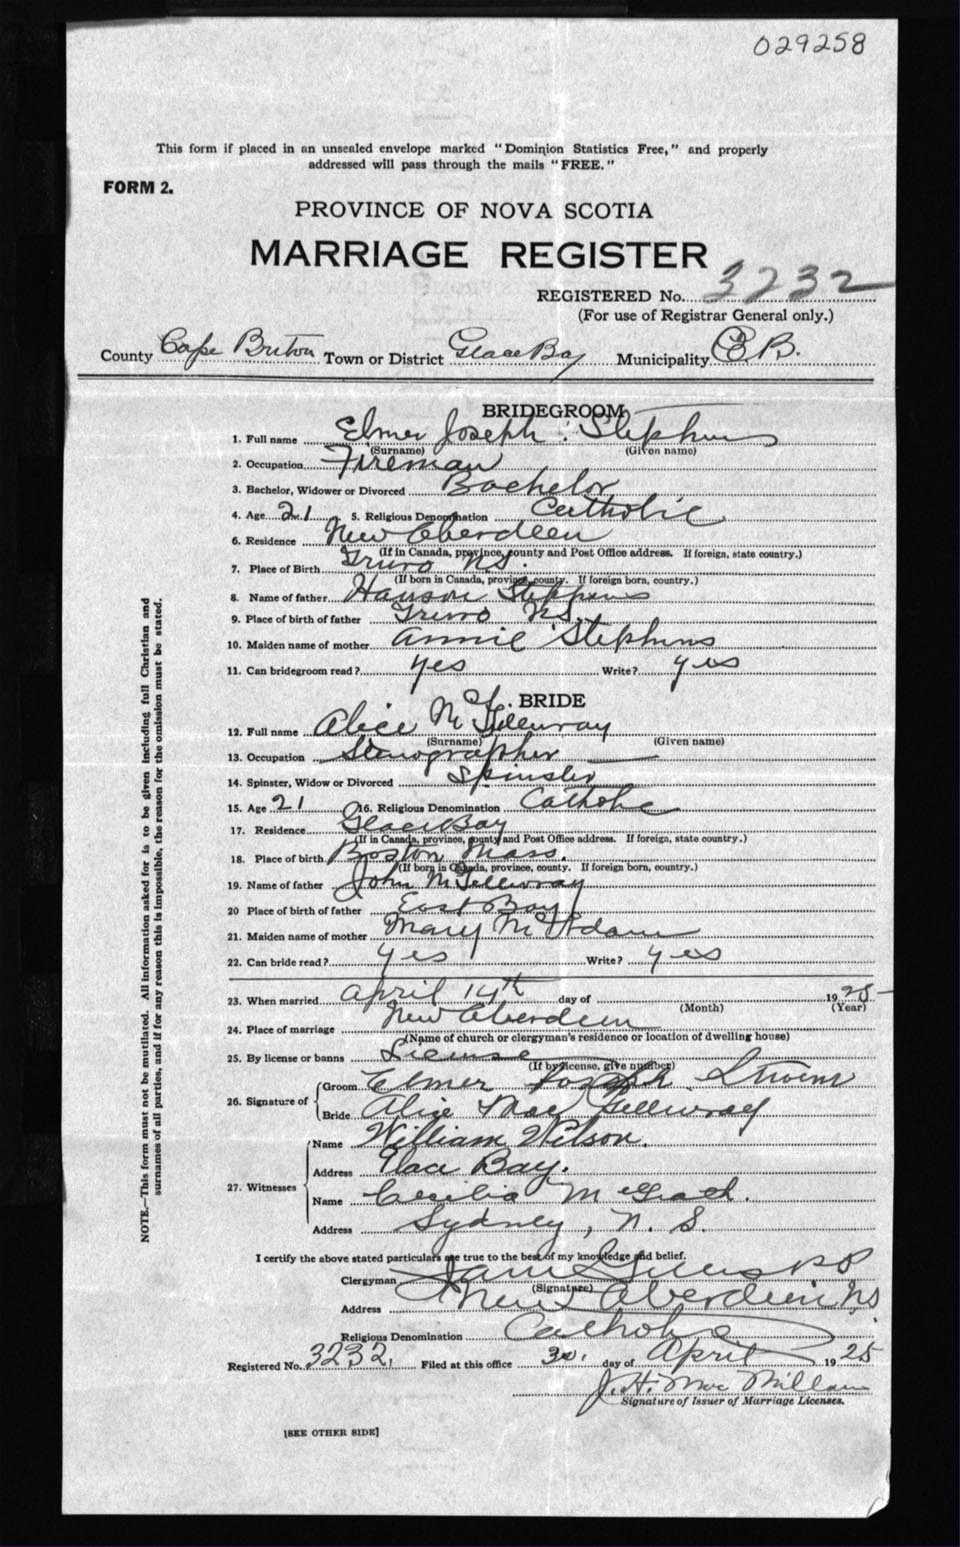 029258
This form if placed in an unsealed envelope marked "Dominion Statistics Free," and properly
addressed will pass through the mails "FREE."
FORM 2.
PROVINCE OF NOVA SCOTIA
MARRIAGE REGISTER
REGISTERED No. 3232
(For use of Registrar General only.)
County Cape Breton Town or District Glace Bay Municipality C B.
BRIDEGROOM
1. Full name Elmer Joseph Stephens
(Surname) (Given name)
2. Occupation Fireman
3. Bachelor, Widower or Divorced Bachelor
4. Age 21 5. Religious Denomination Catholic
6. Residence New Aberdeen
(If in Canada, province, county and Post Office address. If foreign, state country.)
7. Place of Birth Truro N.S.
(If born in Canada, province, county. If foreign born, country.)
8. Name of father Hanson Stephens
9. Place of birth of father Truro N.S.
10. Maiden name of mother Annie Stephens
11. Can bridegroom read? yes Write? yes
BRIDE
12. Full name Alice McGillivray
(Surname) (Given name)
13. Occupation Stenographer
14. Spinster, Widow or Divorced Spinster
15. Age 21 16. Religious Denomination Catholic
17. Residence Glace Bay
(If in Canada, province, county and Post Office address. If foreign, state country.)
18. Place of birth Boston Mass.
(If born in Canada, province, county. If foreign born, country.)
19. Name of father John McGillivray
20 Place of birth of father East Bay
21. Maiden name of mother Mary McAdam
22. Can bride read? yes Write? yes
23. When married April 14th day of 1925
(Month) (Year)
24. Place of marriage New Aberdeen
(Name of church or clergyman's residence or location of dwelling house)
25. By license or banns License
(If by license, give number)
26. Signature of Groom Elmer Joseph
Bride Alice May Gillivray
27. Witnesses Name William Wilson.
Address Glace Bay.
Name Cecilia McGrath.
Address Sydney, N. S.
I certify the above stated particulars are true to the best of my knowledge and belief.
Clergyman
(Signature)
Address New Aberdeen N.S
Religious Denomination Catholic
Registered No. 3232. Filed at this office 30. day of April 1925
J. H. MacMillan
Signature of Issuer of Marriage Licenses.
[SEE OTHER SIDE]
NOTE.—This form must not be mutilated. All information asked for is to be given including full Christian and
surnames of all parties, and if for any reason this is impossible, the reason for the omission must be stated.